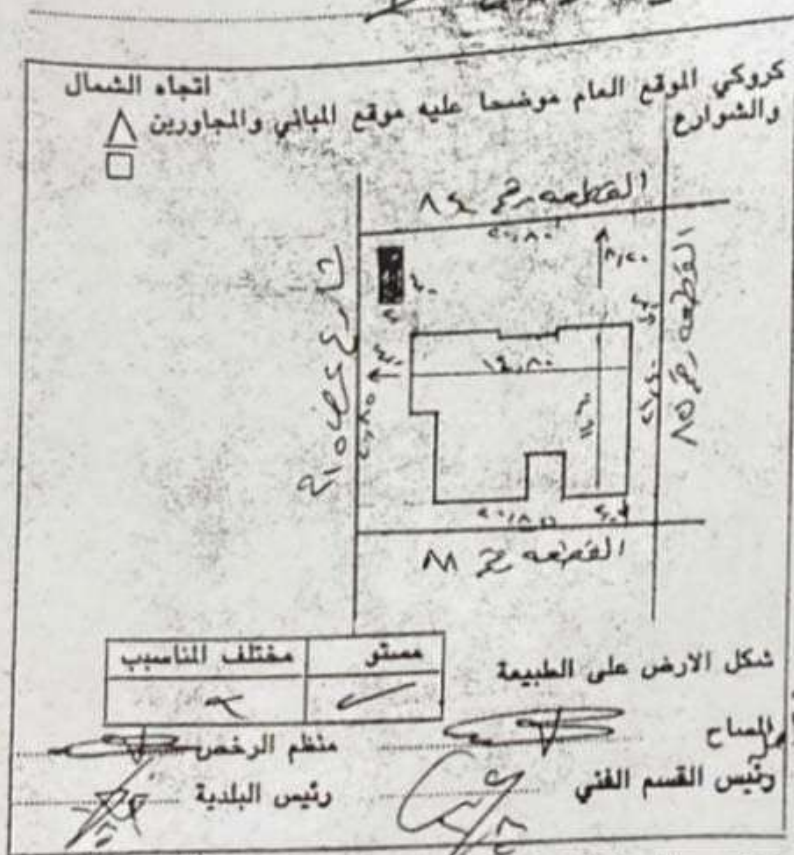 كروكي الموقع العام موضحا عليه موقع المباني والمجاورين
والشوارع
اتجاه الشمال
القطعه رقم ٨٤
٢٠,٨٠
٨,٢٠
القطعه رقم ٨٥
شارع عرض ١٥ م
١٤,٨٠
٢٠,٨٠
القطعه رقم ٨٨
شكل الارض على الطبيعة
مستو
مختلف المناسيب
المساح
منظم الرخص
رئيس القسم الفني
رئيس البلدية